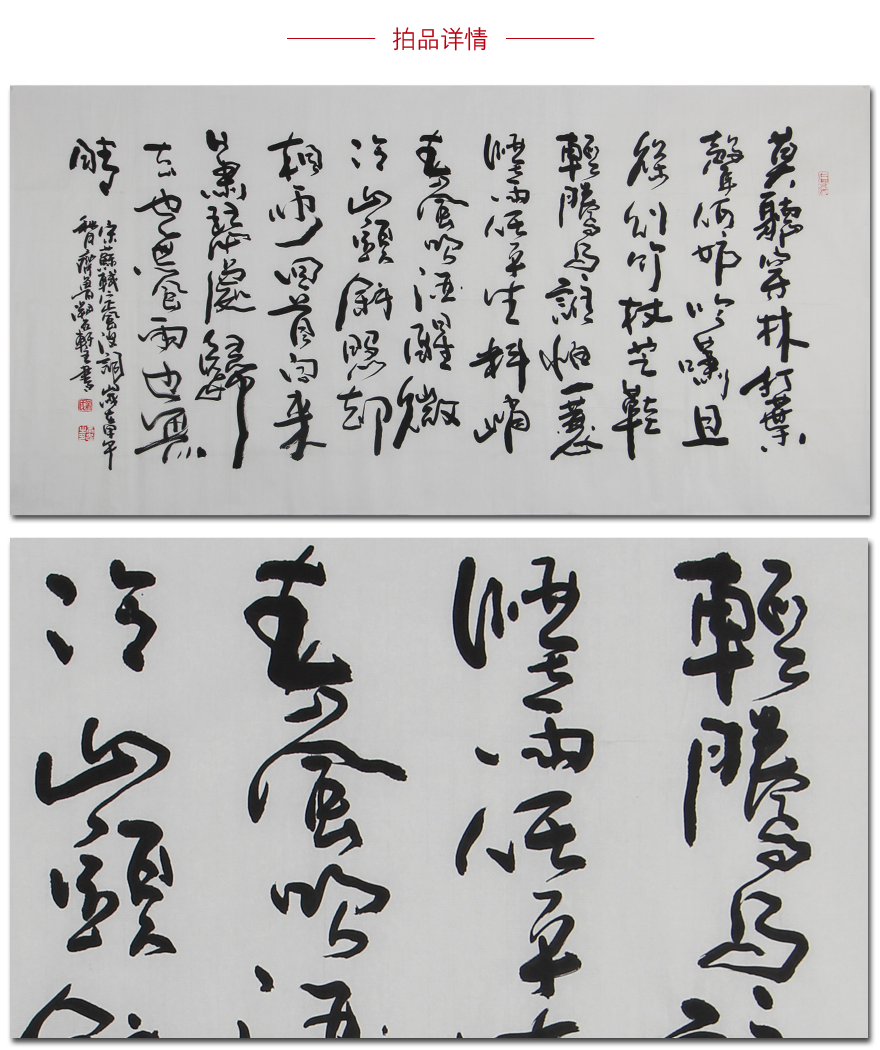 拍品详情
莫聽穿林打葉
聲何妨吟嘯且
徐行竹杖芒鞋
輕勝馬誰怕一蓑
煙雨任平生料峭
春風吹酒醒微
冷山頭斜照却
相迎回首向来
蕭瑟處歸
去也無風雨也無
晴
宋蘇軾定風波詞歲在甲午
輕勝馬
煙雨任平
春風吹酒
冷山頭